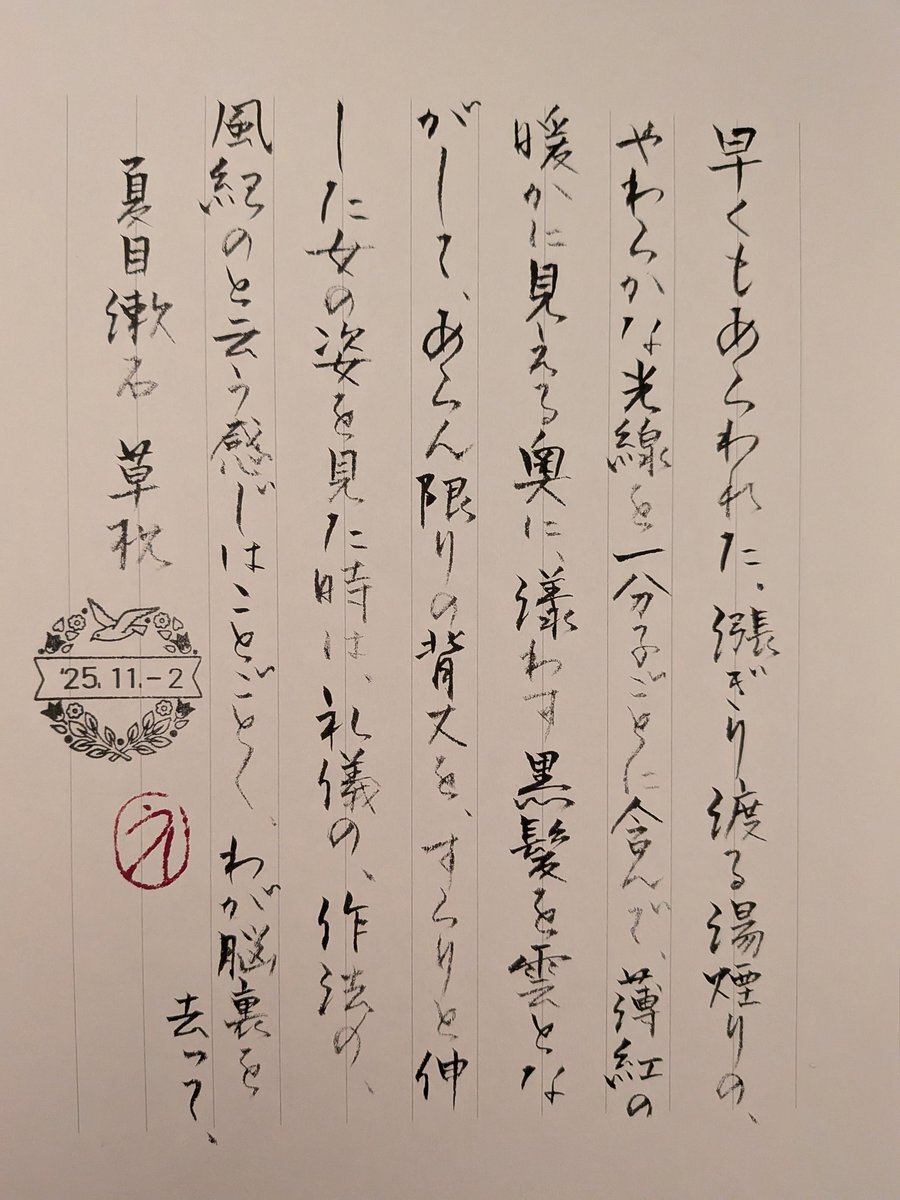 早くもあらわれた。漲ぎり渡る湯煙りの、
やわらかな光線を一分子ごとに含んで、薄紅の
暖かに見える奥に、漾わす黒髪を雲とな
がして、あらん限りの背丈を、すらりと伸
した女の姿を見た時は、礼儀の、作法の、
風紀のと云う感じはことごとく、わが脳裏を
去って、
夏目漱石 草枕
'25.11.-2